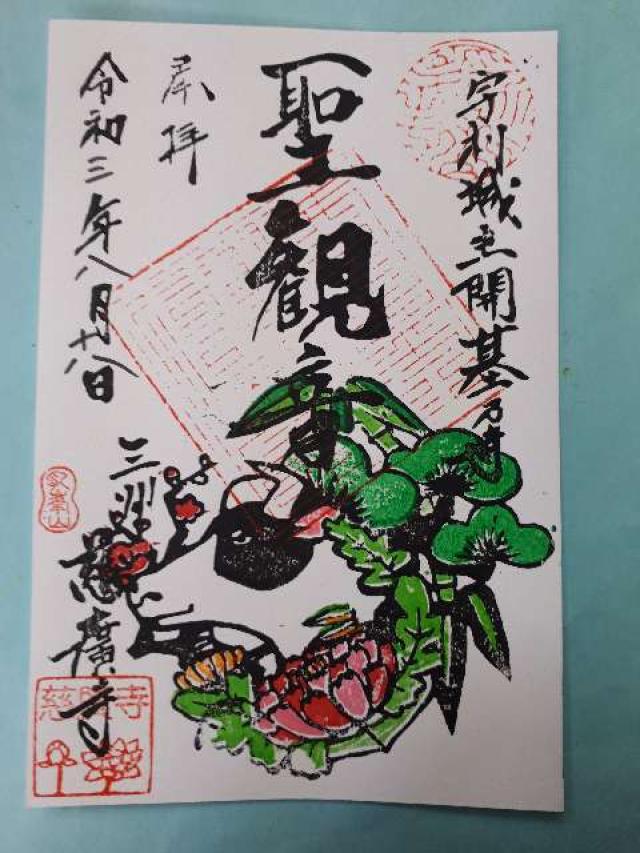 宇利城主開基乃寺
聖観音
奉拝
令和三年八月十八日
三州
慈廣寺
慈廣寺